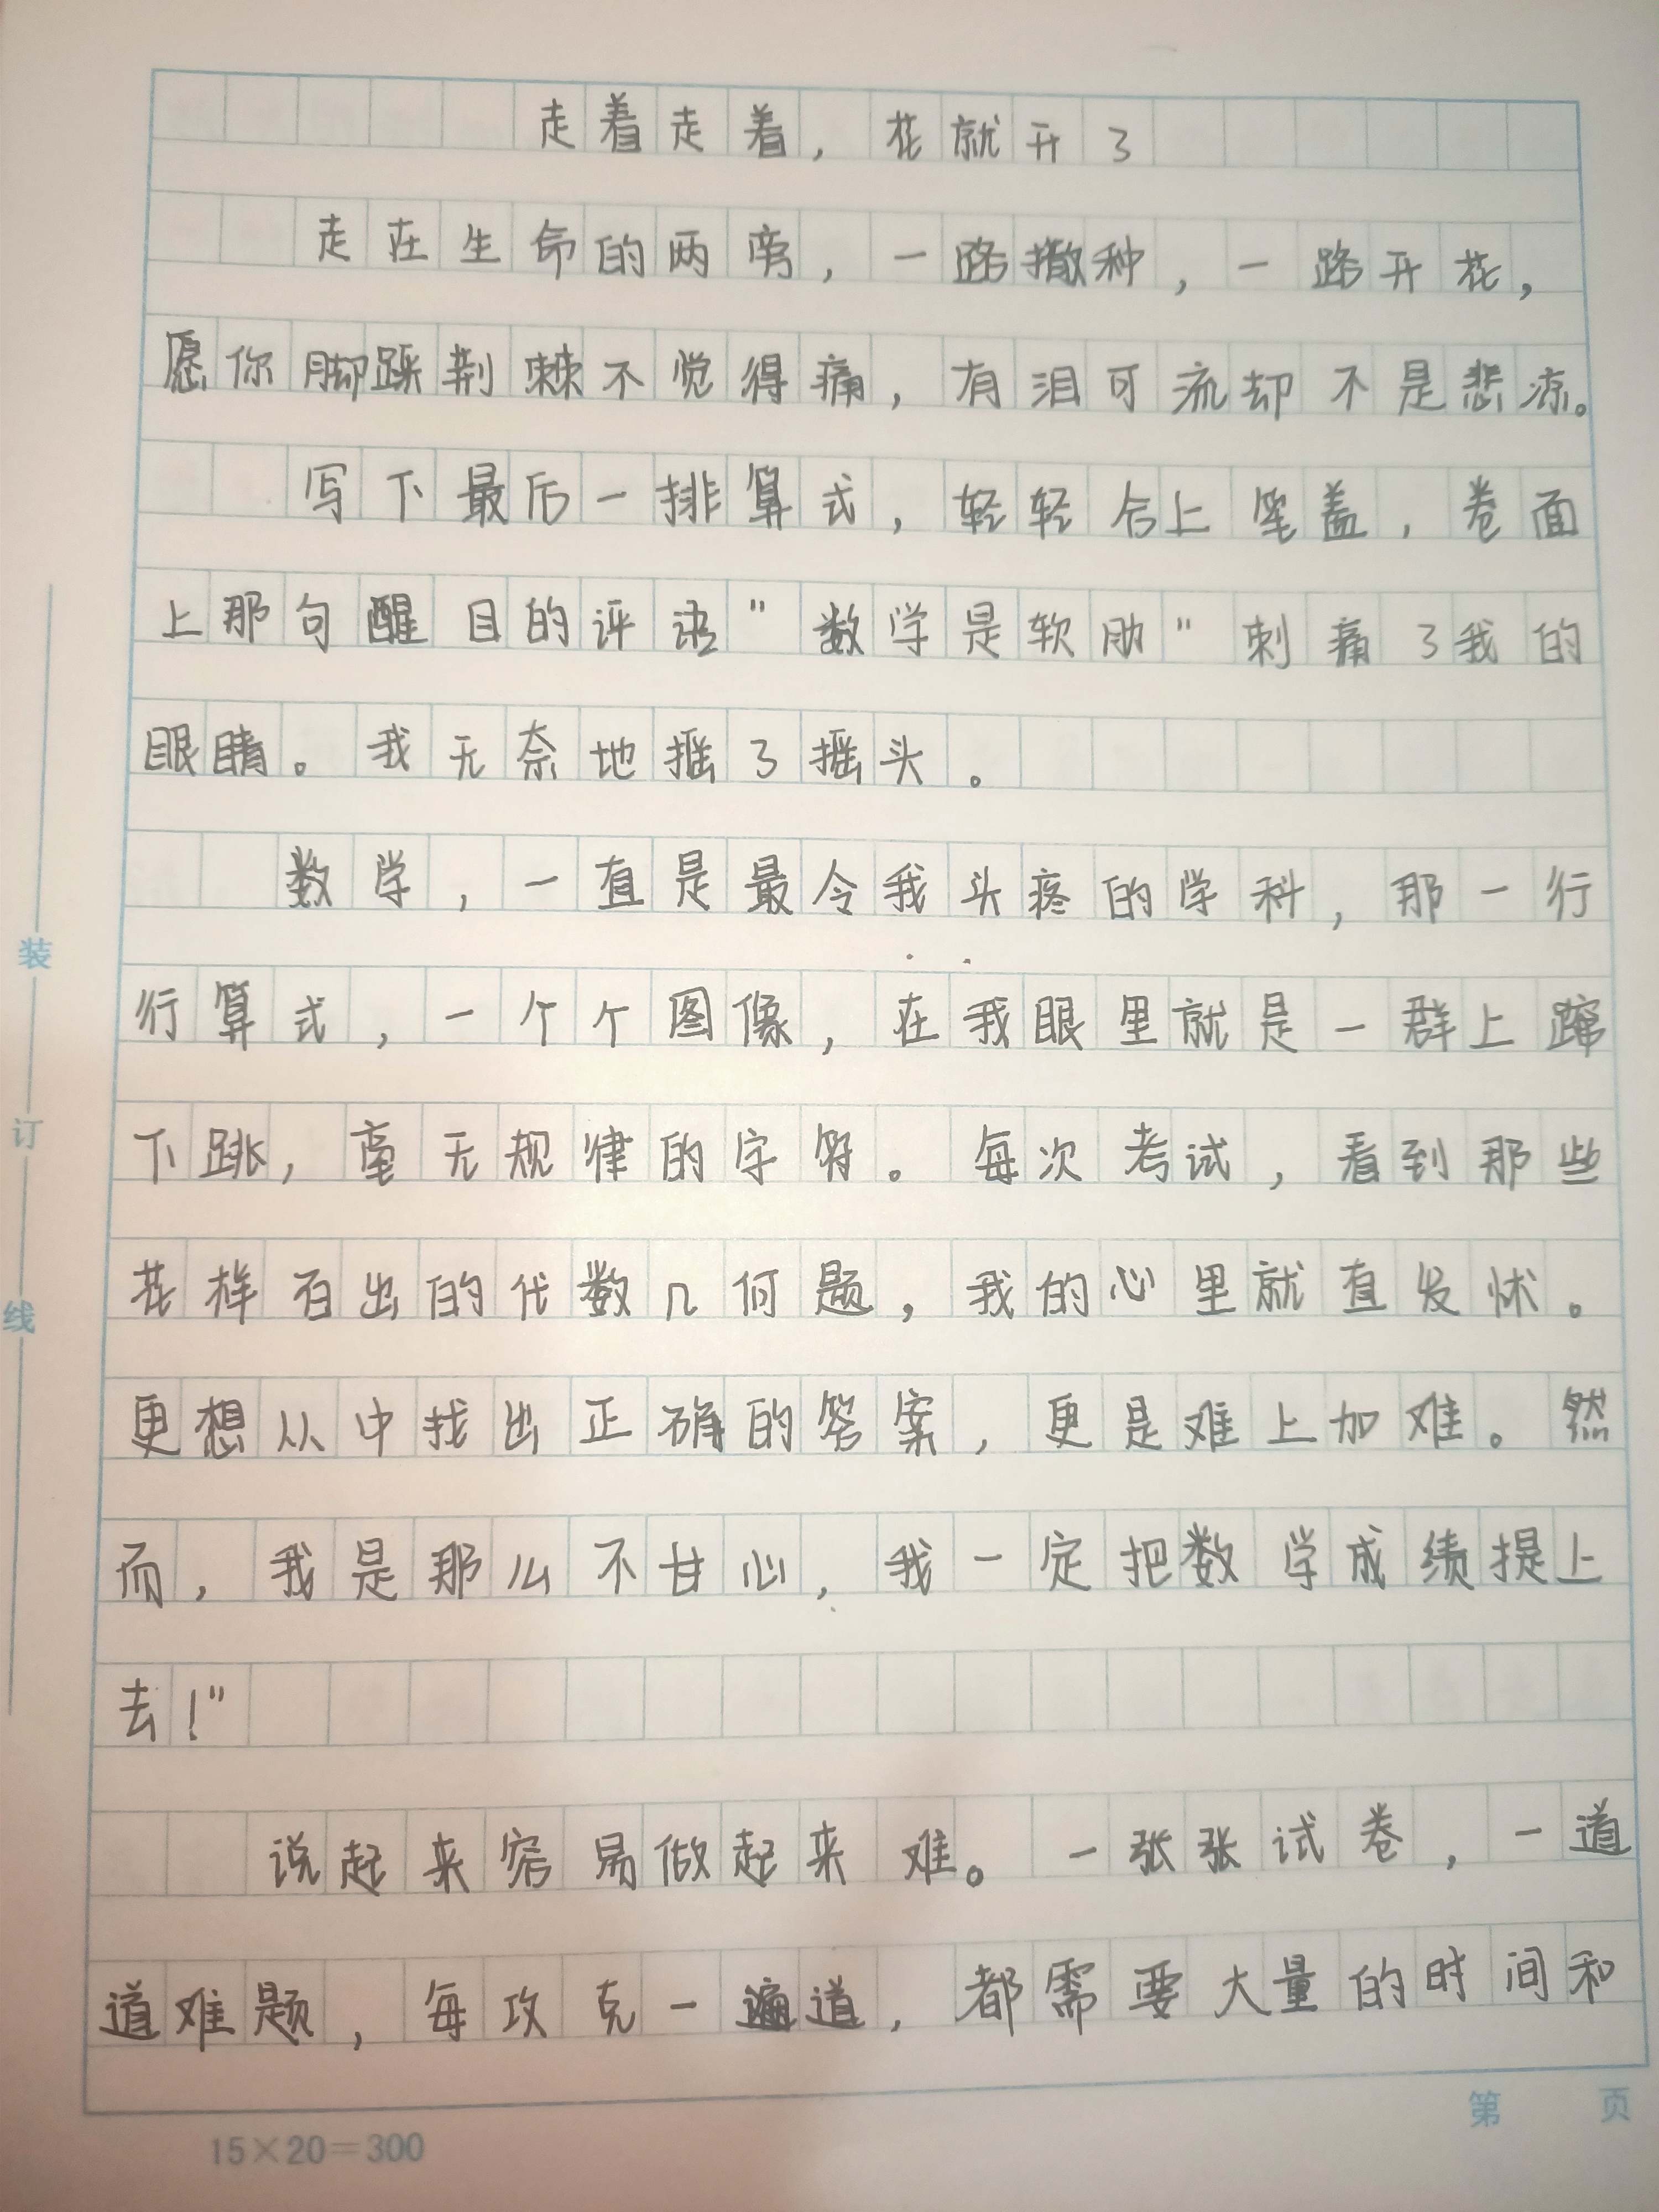 走着走着，花就开了
走在生命的两旁，一路撒种，一路开花，
愿你脚踩荆棘不觉得痛，有泪可流却不是悲凉。
写下最后一排算式，轻轻合上笔盖，卷面
上那句醒目的评语"数学是软肋"刺痛了我的
眼睛。我无奈地摇了摇头。
数学，一直是最令我头疼的学科，那一行
行算式，一个个图像，在我眼里就是一群上蹿
下跳，毫无规律的字符。每次考试，看到那些
花样百出的代数几何题，我的心里就直发怵。
更想从中找出正确的答案，更是难上加难。然
而，我是那么不甘心，我一定把数学成绩提上
去！"
说起来容易做起来难。一张张试卷，一道
道难题，每攻克一遍道，都需要大量的时间和
装
订
线
第 页
15×20=300